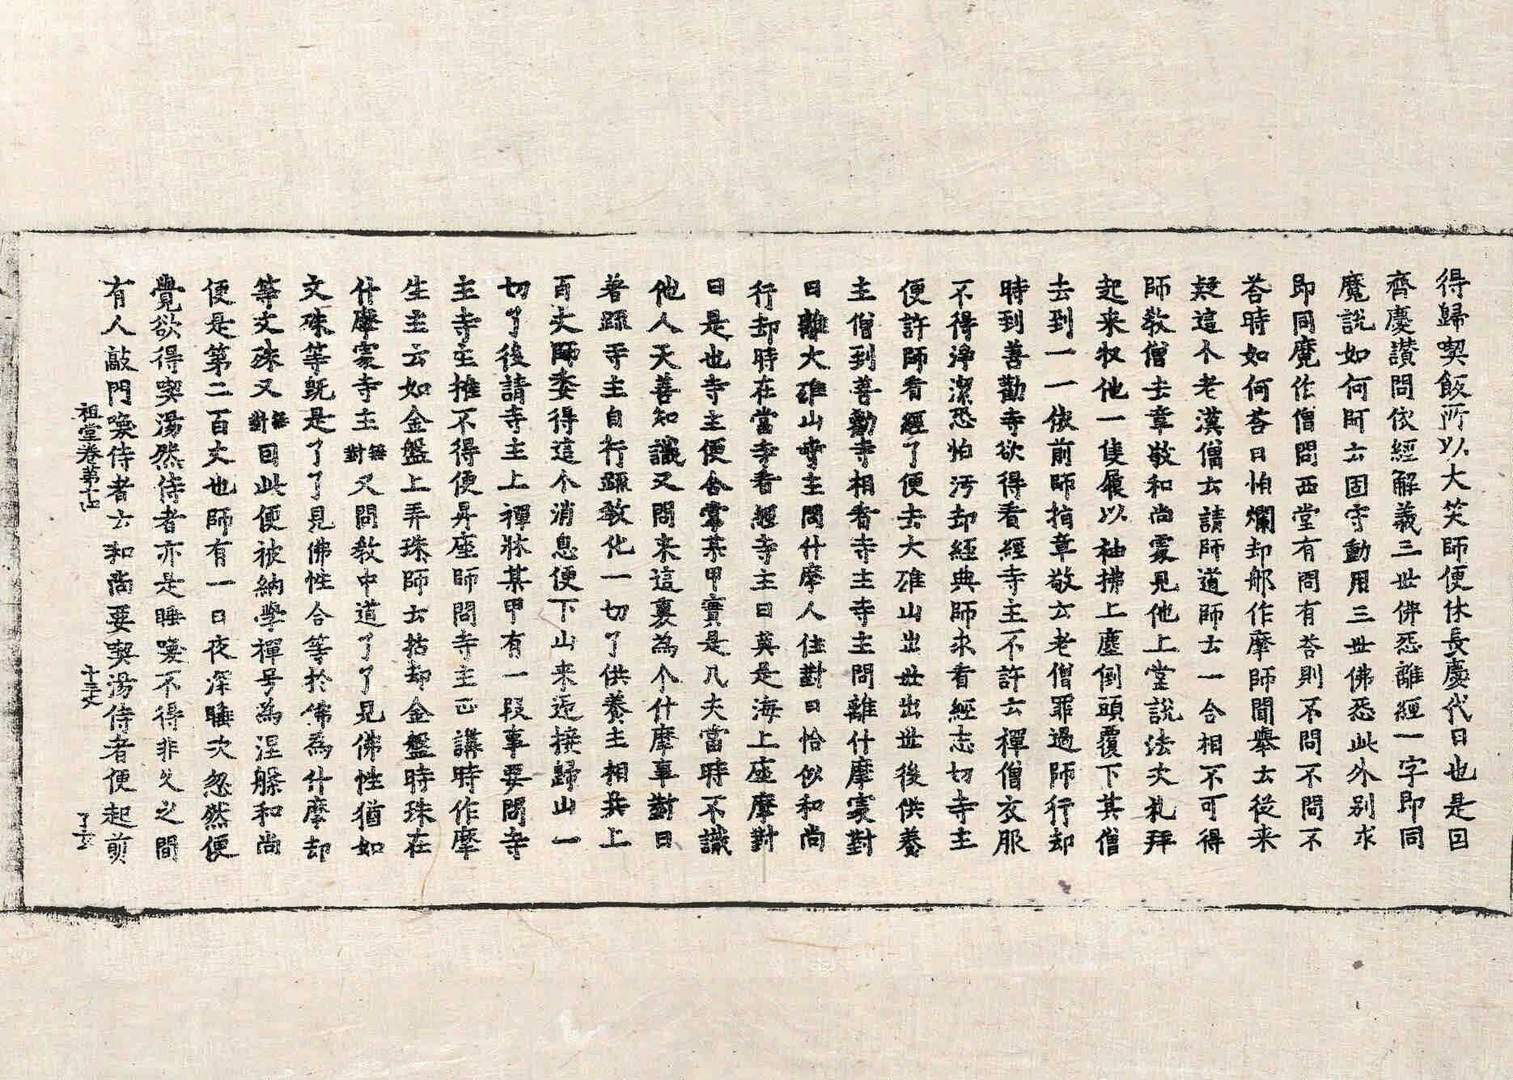 得歸喫飯所以大笑師便休長慶代曰也是因
齊慶讚問依經解義三世佛悉離經一字即同
魔說如何師云固守動用三世佛悉此外別求
即同魔作僧問西堂有問有答則不問不問不
答時如何答曰怕爛却那作摩師聞舉云從来
疑這个老漢僧云請師道師云一合相不可得
師教僧去章敬和尚處見他上堂說法次礼拜
起来收他一隻履以袖拂上塵倒頭覆下其僧
去到一一依前師指章敬云老僧罪過師行却
時到善勸寺欲得看經寺主不許云禪僧衣服
不得淨潔恐怕汚却経典師求看經志切寺主
便許師看經了便去大雄山出世出世後供養
主僧到善勸寺相看寺主寺主問離什摩處對
曰離大雄山寺主問什摩人住對曰恰似和尚
行却時在當寺看經寺主曰莫是海上座摩對
曰是也寺主便合掌某甲實是凡夫當時不識
他人天善知識又問来這裏為个什摩事對曰
著䟽寺主自行䟽教化一切了供養主相共上
百丈師委得這个消息便下山来迎接歸山一
切了後請寺主上禪牀某甲有一段事要問寺
主寺主推不得便昇座師問寺主正講時作摩
生主云如金盤上弄珠師云拈却金盤時珠在
什摩處寺主無對又問教中道了了見佛性猶如
文殊等旣是了了見佛性合等於佛為什摩却
等文殊又無對因此便被納學禪号為涅槃和尚
便是第二百丈也師有一日夜深睡次忽然便
覺欲得喫湯然侍者亦是睡喚不得非久之間
有人敲門喚侍者云和尚要喫湯侍者便起煎
祖堂卷第十四 十三丈